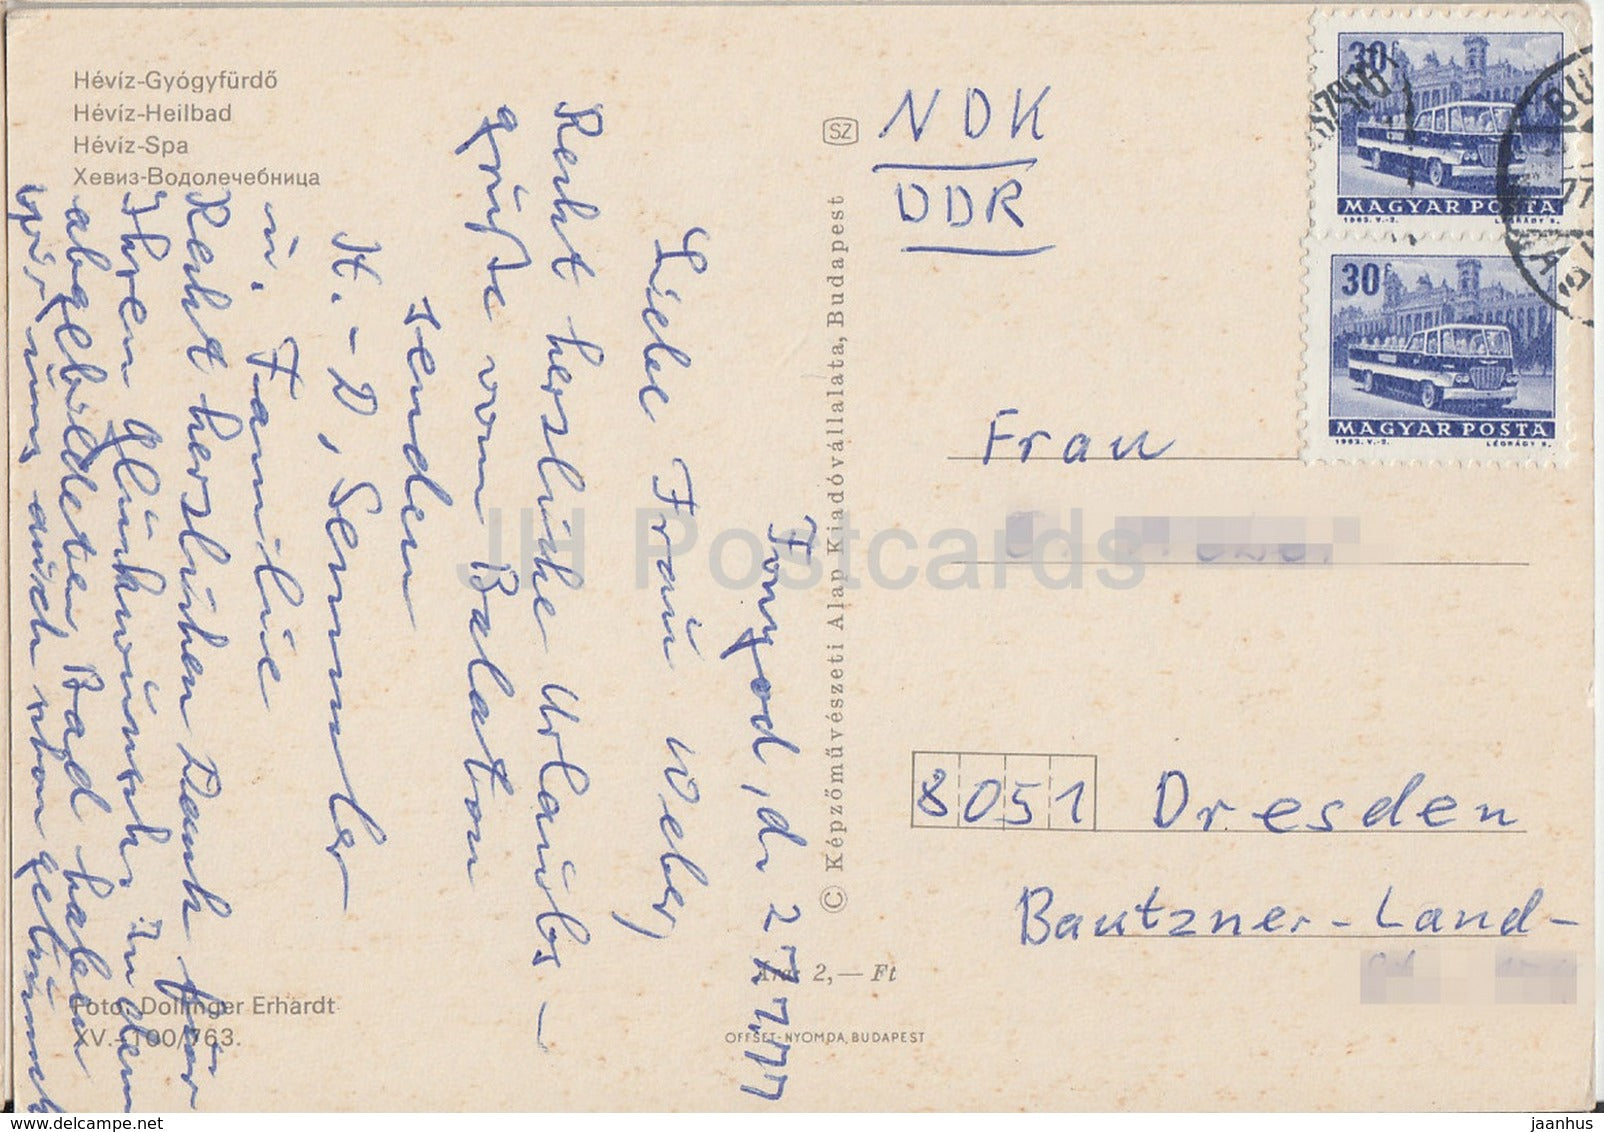 Hévíz-Gyógyfürdő
Hévíz-Heilbad
Hévíz-Spa
Хевиз-Водолечебница
Fonyod, d. 27.7.77
Liebe Frau Weber,
Recht herzliche Urlaubs-
grüße vom Balaton
senden
H.-D. Semmler
u. Familie
Recht herzlichen Dank für
Ihren Glückwunsch. In dem
abgebildeten Bad haben
wir uns auch schon getummelt
Foto: Dollinger Erhardt
XV.-100/763.
SZ
© Képzőművészeti Alap Kiadóvállalata, Budapest
Ára: 2,— Ft
OFFSET-NYOMDA, BUDAPEST
NDK
DDR
30f
MAGYAR POSTA
1963. V.-2. LÉGRÁDY S.
30f
MAGYAR POSTA
1963. V.-2. LÉGRÁDY S.
Frau
8051 Dresden
Bautzner-Land-
JH Postcards
jaanhus www.delcampe.net